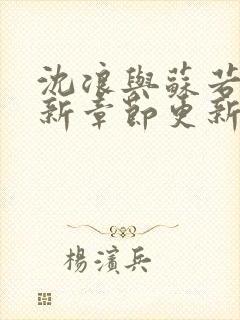 沈浪與蘇若
新章節更新
楊濱兵